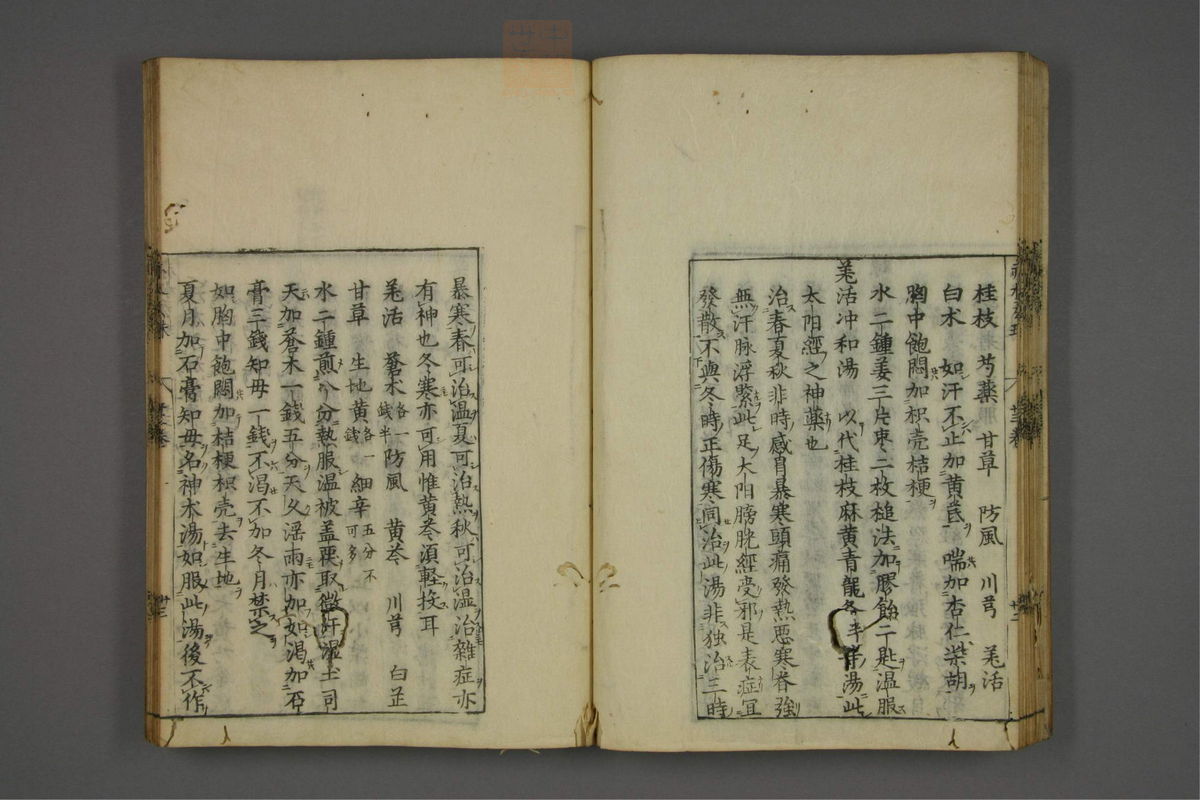 桂枝 芍薬 甘草 防風 川芎 羌活
白朮 如汗不止加黄芪 喘加杏仁柴胡
胸中飽悶加枳壳桔梗
水二鍾姜三片枣二枚槌法加膠飴二匙温服
羌活冲和湯 以代桂枝麻黄青龍各半等湯此
太阳經之神薬也
治春夏秋非時感冒暴寒頭痛發熱悪寒脊強
無汗脉浮緊此足太阳膀胱經受邪是表症宜
發散不與冬時正傷寒同治此湯非独治三時
暴寒春可治温夏可治熱秋可治温治雜症亦
有神也冬寒亦可用惟黄芩須軽投耳
羌活 蒼朮各一錢半 防風 黄芩 川芎 白芷
甘草 生地黄各一錢 細辛五分不可多
水二鍾煎八分熱服温被盖覆取微汗湿土司
天加蒼朮一錢五分天久淫雨亦加如渇加石
膏三錢知母一錢不渇不加冬月禁之
如胸中飽悶加桔梗枳壳去生地
夏月加石膏知母名神朮湯如服此湯後不作